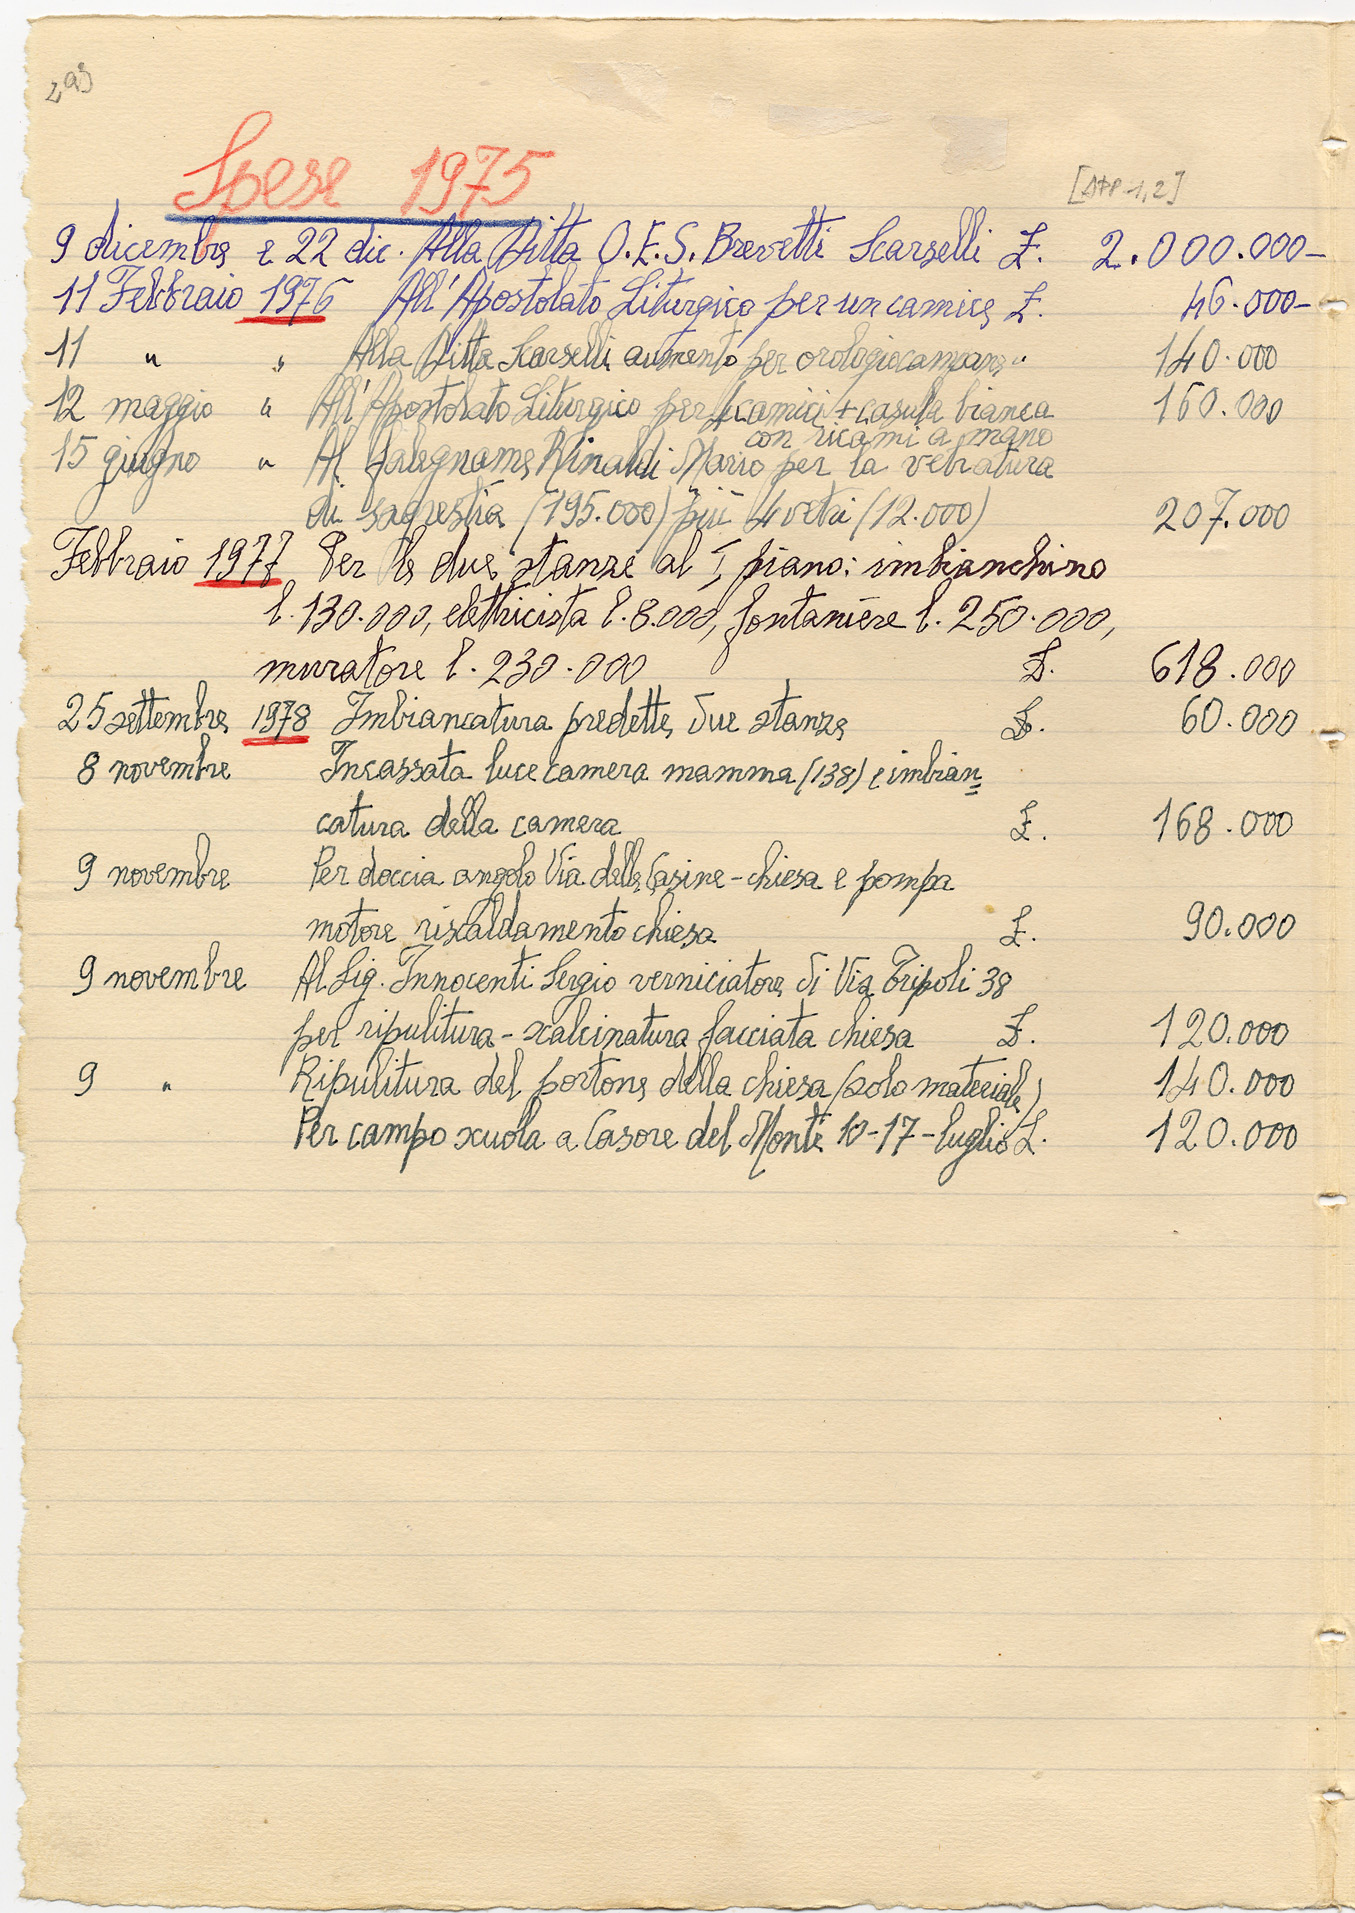 293
Spese 1975
[APP. 1,2]
9 dicembre e 22 dic. Alla Ditta O.E.S. Brevetti Scarselli £. 2.000.000-
11 Febbraio 1976 All'Apostolato Liturgico per un camice £. 46.000-
11 " " Alla Ditta Scarselli aumento per orologio campane " 140.000
12 maggio " All'Apostolato Liturgico per 4 camici + casula bianca 160.000
con ricami a mano
15 giugno " Al falegname Rinaldi Mario per la vetratura
di sagrestia (195.000) più 4 vetri (12.000) 207.000
Febbraio 1977 Per le due stanze al I piano: imbianchino
l. 130.000, elettricista l. 8.000, fontaniere l. 250.000,
muratore l. 230.000 £. 618.000
25 settembre 1978 Imbiancatura predette due stanze £. 60.000
8 novembre Incassata luce camera mamma (138) e imbian=
catura della camera £. 168.000
9 novembre Per doccia angolo Via delle Casine - chiesa e pompa
motore riscaldamento chiesa £. 90.000
9 novembre Al Sig. Innocenti Sergio verniciatore di Via Tripoli 38
per ripulitura - scalcinatura facciata chiesa £. 120.000
9 " Ripulitura del portone della chiesa (solo materiale) 140.000
Per campo scuola a Casore del Monte 10-17-luglio £. 120.000